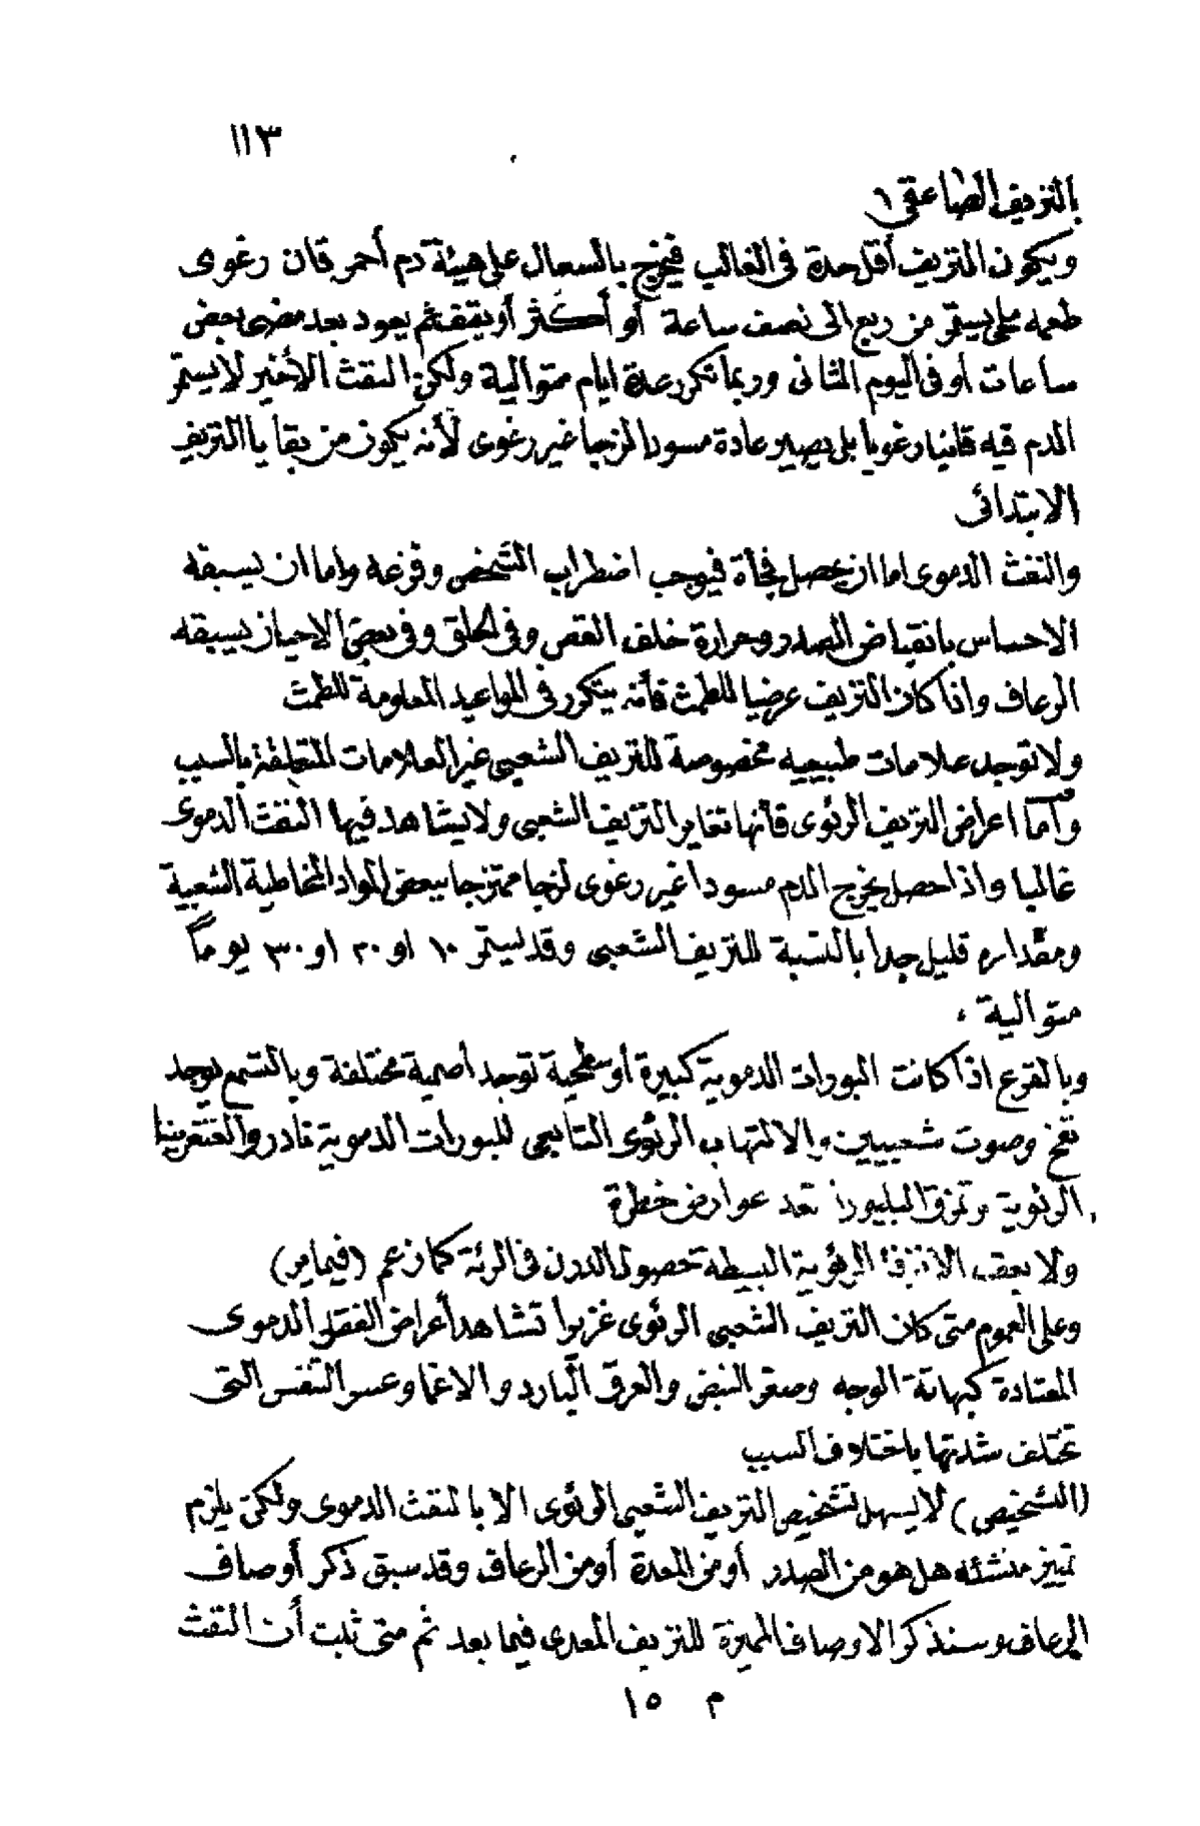 ١١٣
بالنزيف الصاعقى
ويكون النزيف أقل حدة فى الغالب فيخرج بالسعال على هيئة دم أحمر قان رغوى
طعمه ملحى يستمر من ربع الى نصف ساعة أو أكثر أو يقف ثم يعود بعد مضى بعض
ساعات أو فى اليوم الثانى وربما تكرر عدة ايام متوالية ولكن النفث الأخير لا يستمر
الدم فيه قانيا رغويا بل يصير عادة مسودا لزجا غير رغوى لأنه يكون من بقايا النزيف
الابتدائى
والنفث الدموى اما ان يحصل فجأة فيوجب اضطراب الشخص وفزعه واما ان يسبقه
الاحساس بانقباض الصدر وحرارة خلف القص وفى الحلق وفى بعض الاحيان يسبقه
الرعاف واذا كان النزيف عرضيا للطمث فأنه يتكرر فى المواعيد المعلومة للطمث
ولا توجد علامات طبيعيه مخصوصة للنزيف الشعبى غير العلامات المتعلقة بالسبب
وأما اعراض النزيف الرئوى فأنها تغاير النزيف الشعبى ولا يشاهد فيها النفث الدموى
غالبا واذا حصل يخرج الدم مسودا غير رغوى لزجا ممتزجا ببعض المواد المخاطية الشعبية
ومقداره قليل جدا بالنسبة للنزيف الشعبى وقد يستمر ١٠ او ٢٠ او ٣٠ يوماً
متوالية ،
وبالقرع اذا كانت البورات الدموية كبيرة أو سطحية توجد أصمية مختلفة وبالتسمع يوجد
نفخ وصوت شعبيين والالتهاب الرئوى التابعى للبورات الدموية نادر والغنغرينا
الرئوية وتمزق البليورا تعد عوارض خطرة
ولا يعقب الانزفة الرئوية البسيطة حصول الدرن فى الرئة كما زعم (فيماير)
وعلى العموم متى كان النزيف الشعبى الرئوى غزيرا تشاهد أعراض الفقد الدموى
المعتادة كبهاتة الوجه وصغر النبض والعرق البارد والاغما وعسر التنفس التى
تختلف شدتها باختلاف السبب
(التشخيص) لا يسهل تشخيص النزيف الشعبى الرئوى الا بالنفث الدموى ولكن يلزم
تمييز منشئه هل هو من الصدر أو من المعدة أو من الرعاف وقد سبق ذكر أوصاف
الرعاف وسنذكر الاوصاف المميزة للنزيف المعدى فيما بعد ثم متى ثبت أن النفث
م ١٥